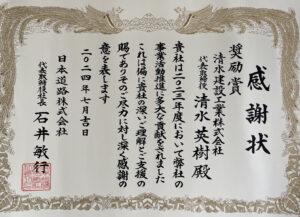 感謝状
奨励賞
清水建設工業株式会社
代表取締役 清水英樹殿
貴社は二〇二三年度において弊社の
事業活動推進に多大な貢献をされました
これは偏に貴社の深いご理解とご支援の
賜でありそのご尽力に対し深く感謝の
意を表します
二〇二四年七月吉日
日本道路株式会社
代表取締役社長 石井敏行